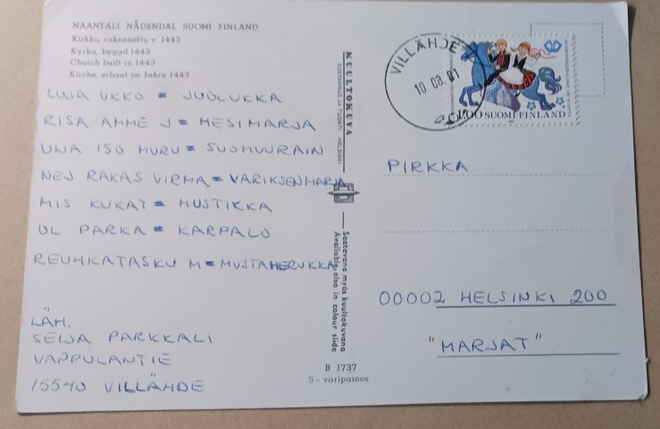 NAANTALI NÅDENDAL SUOMI FINLAND
Kirkko, rakennettu v. 1443
Kyrka, byggd 1443
Church built in 1443
Kirche, erbaut im Jahre 1443
LUJA UKKO = JUOLUKKA
RISA ÄMME J = MESIMARJA
UNA ISO MURU = SUOMUURAIN
NEJ RAKAS VIRMA = VARIKSENMARJA
MIS KUKAT = MUSTIKKA
OL PARKA = KARPALO
REUHKATASKU M = MUSTAHERUKKA
LÄH.
SEIJA PARKKALI
VAPPULANTIE
15540 VILLÄHDE
KUULTOKUVA
HELSINKI
Saatavana myös kuultokuvana
Available also in colour slide
B 1737
5 - väripainos
VILLÄHDE
10.08.91
SUOMI-FINLAND
PIRKKA
00002 HELSINKI 200
"MARJAT"